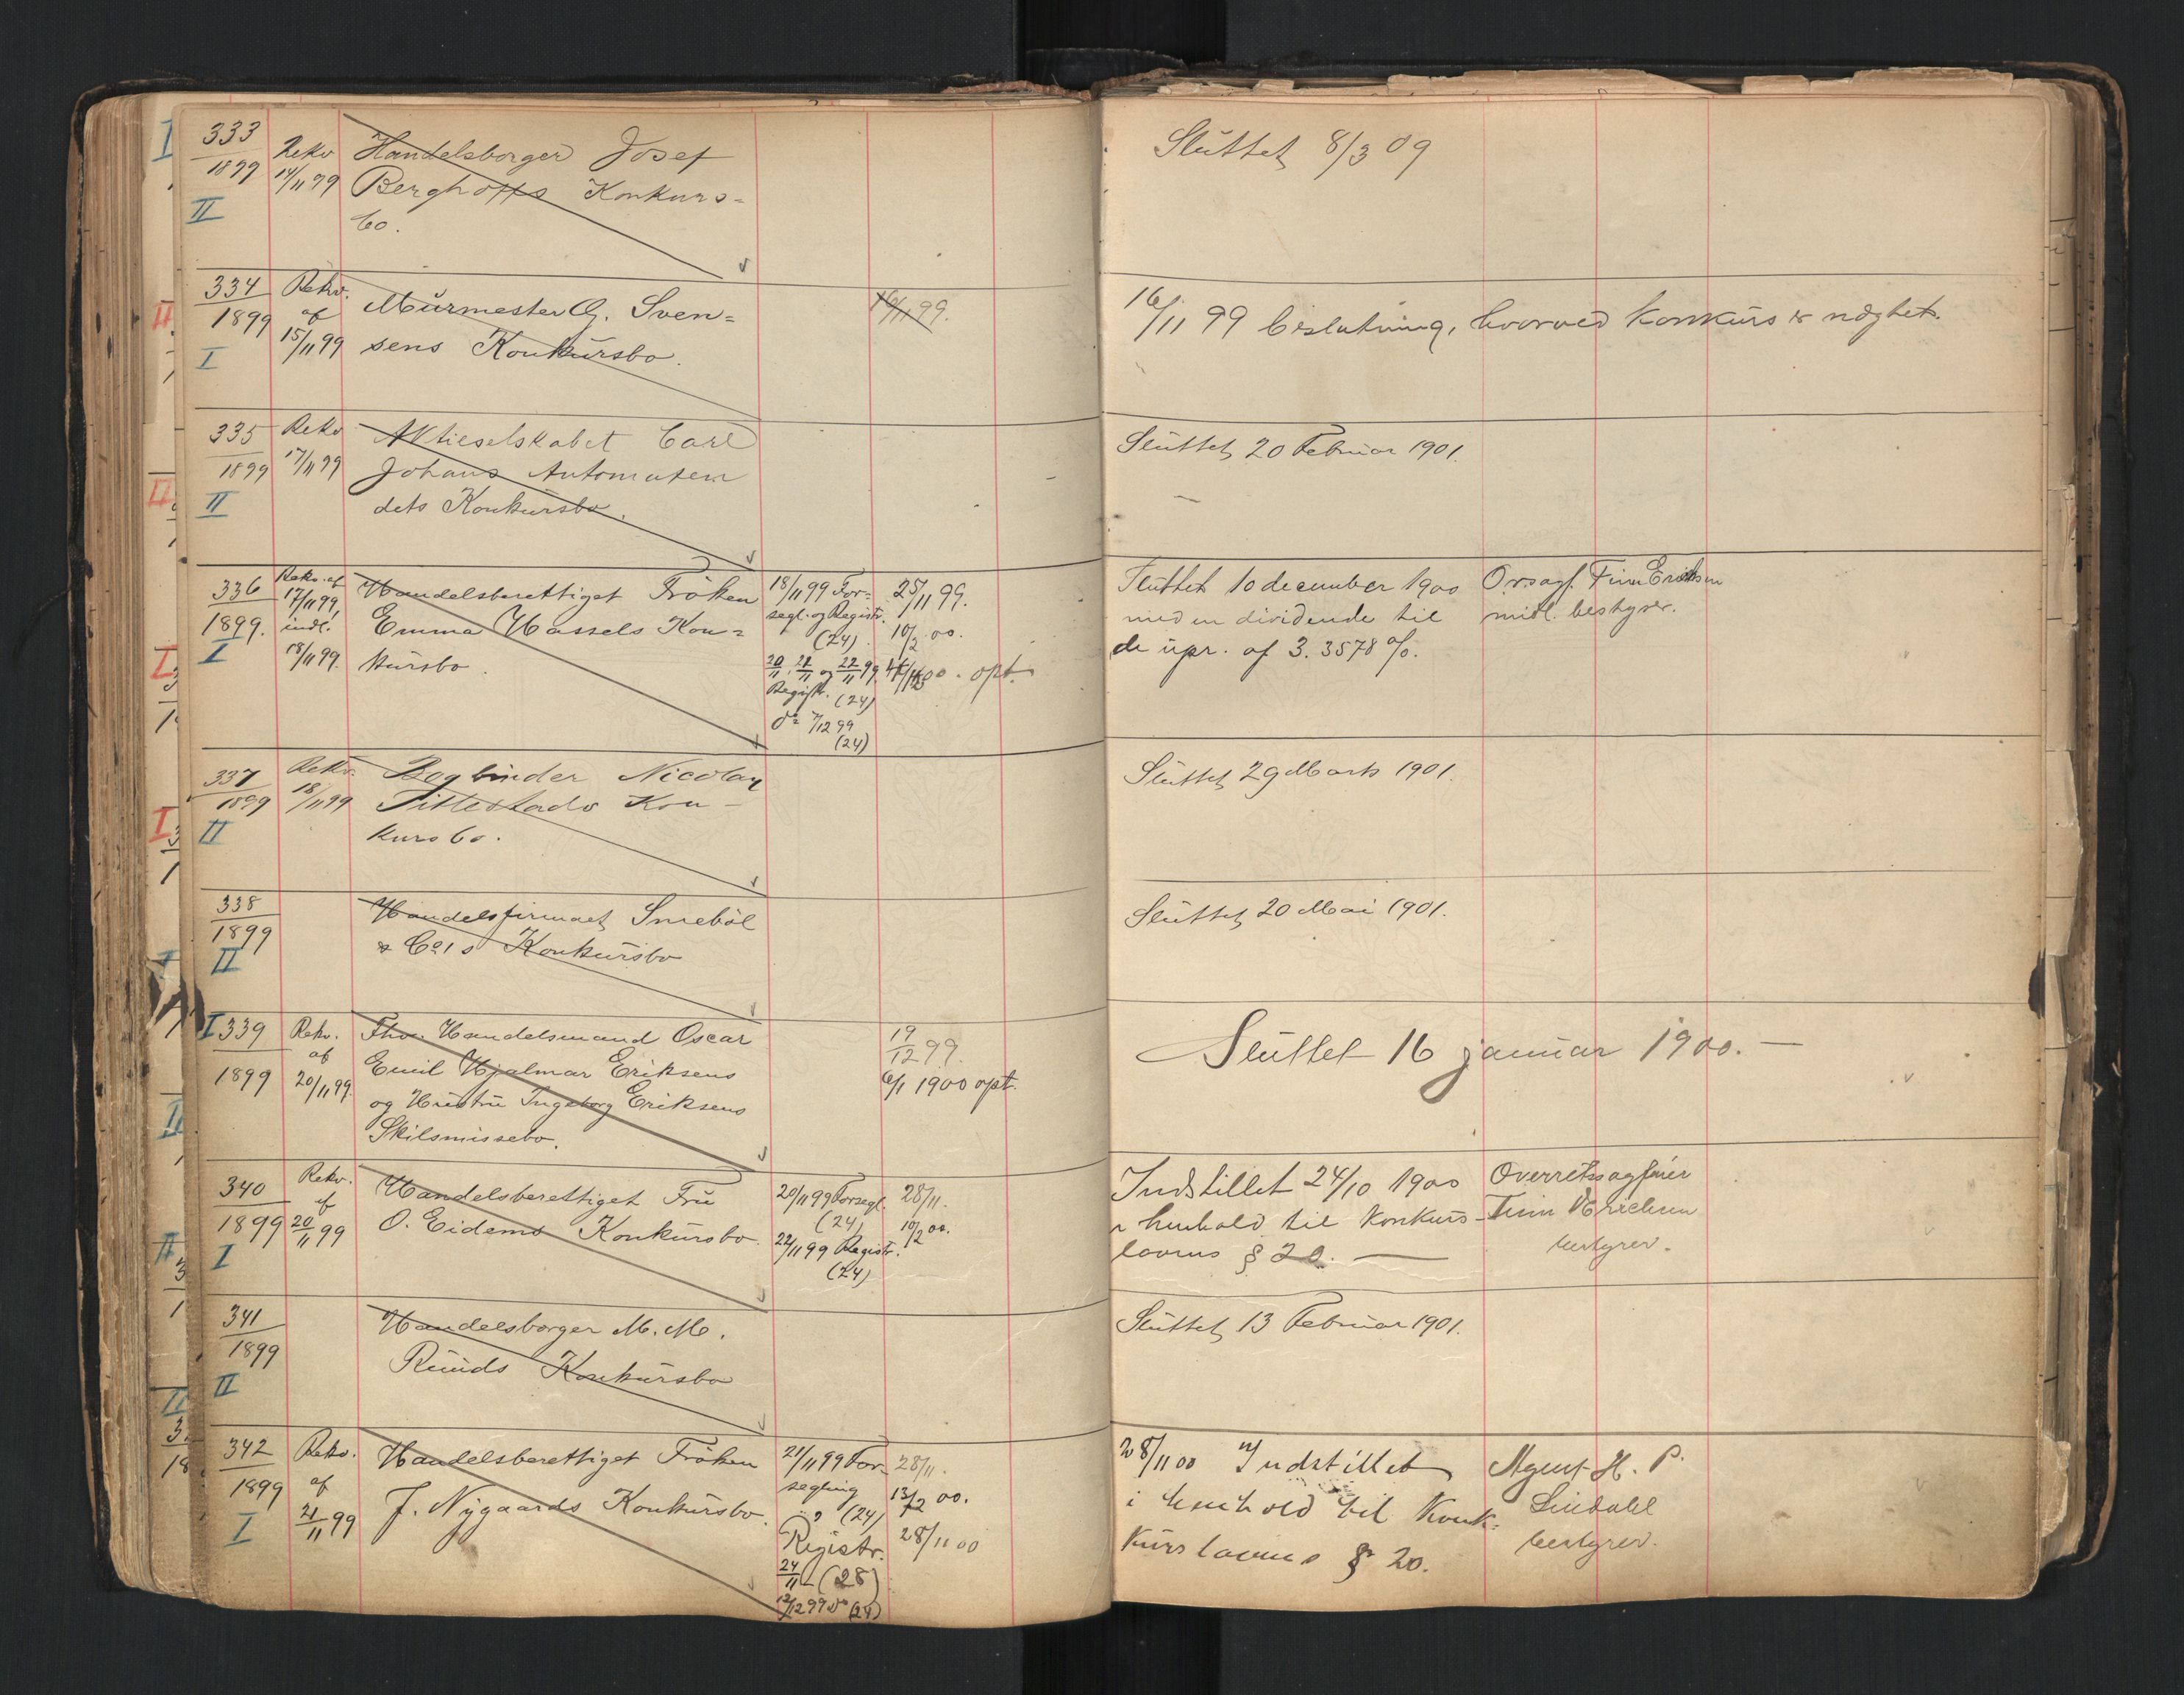 333
1899
II
Rekv
14/11 99
Handelsborger Josef
Berghoffs Konkurs-
bo.
Sluttet 8/3 09
334
1899
I
Rekv.
af
15/11 99
Murmester G. Sven=
sens Konkursbo.
16/11 99.
16/11 99 beslutning, hvorved konkurs er nægtet.
335
1899
II
Rekv
17/11 99
Aktieselskabet Carl
Johans Automaten
dets Konkursbo.
Sluttet 20 Februar 1901.
336
1899.
I
Rekv. af
17/11 99,
indl.
18/11 99.
Handelsberettiget Fröken
Emma Hassels Kon=
kursbo.
18/11 99 For=
segl. og Registr.
(24)
20/11, 21/11 og 22/11 99
Registr. (24)
do 7/12 99
(24)
25/11 99.
10/2 00.
00. opt.
Sluttet 10 december 1900
med en dividende til
de upr. af 3.3578 %.
Orsagf. Finn Erichsen
midl. bestyrer.
337
1899
II
Rekv.
18/11 99
Bogbinder Nicolay
Tittestads Kon-
kursbo.
Sluttet 29 Marts 1901.
338
1899
II
Handelsfirmaet Smeböl
& Co's Konkursbo
Sluttet 20 Mai 1901.
I 339
1899
Rekv.
af
20/11 99.
Fhv. Handelsmand Oscar
Emil Hjalmar Eriksens
og Hustru Ingeborg Eriksens
Skilsmissebo.
19/12 99.
6/1 1900 opt.
Sluttet 16 januar 1900. —
340
1899
I
Rekv.
af
20/11 99
Handelsberettiget Fru
O. Eidems Konkursbo.
20/11 99 Forsegl.
(24)
22/11 99 Registr.
(24)
28/11.
10/2 00.
Indstillet 24/10 1900
i henhold til Konkurs-
lovens § 20. —
Overretssagfører
Finn Erichsen
bestyrer.
341
1899
II
Handelsborger M. M.
Ruuds Konkursbo
Sluttet 13 Februar 1901.
342
1899
I
Rekv.
af
21/11 99
Handelsberettiget Fröken
J. Nygaards Konkursbo.
21/11 99 For-
segling
(24)
Registr.
24/11 (28)
12/12 99 do (24)
28/11.
13/2 00.
28/11 00
28/11 00 Indstillet
i henhold til Konk-
kurslovens § 20.
Agent H. P.
Lindahl
bestyrer.